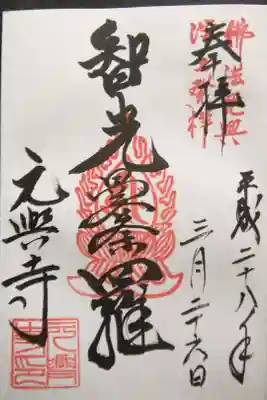 佛法元興
浄土発祥
奉拝
平成二十八年
三月二十六日
智光曼荼羅
元興寺